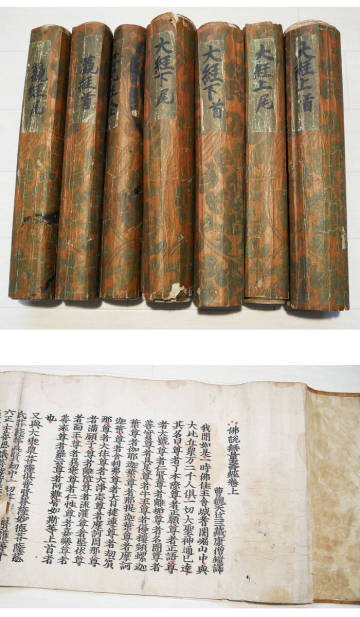 大経上首
大経上尾
大経下首
大経下尾
観経首
観経尾
佛説無量壽經卷上
曹魏天竺三藏康僧鎧譯
我聞如是一時佛住王舍城耆闍崛山中與
大比丘衆萬二千人俱一切大聖神通已達
其名曰尊者了本際尊者正願尊者正語尊
者大號尊者仁賢尊者離垢尊者名聞尊者
善實尊者具足尊者牛王尊者優樓頻螺迦
葉尊者伽耶迦葉尊者那提迦葉尊者摩訶
迦葉尊者舍利弗尊者大目揵連尊者劫賓
那尊者大住尊者大淨志尊者摩訶周那尊
者滿願子尊者離障尊者流灌尊者堅伏尊
者面王尊者異乘尊者仁性尊者嘉樂尊者
善來尊者羅云尊者阿難皆如斯等上首者
也
又與大乘衆菩薩俱普賢菩薩妙德菩薩慈
氏菩薩等此賢劫中一切